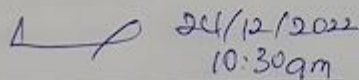 24/12/2022
10:30am